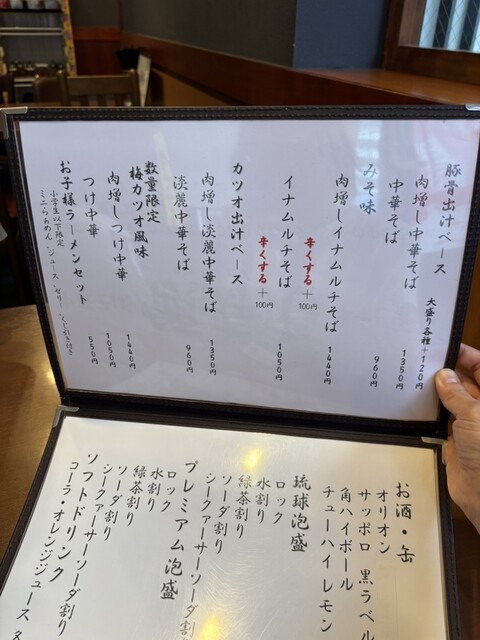 豚骨出汁ベース
大盛り各種+120円
肉増し中華そば
1350円
中華そば
960円
みそ味
肉増しイナムルチそば
1440円
辛くする+100円
イナムルチそば
1050円
辛くする+100円
カツオ出汁ベース
肉増し淡麗中華そば
1350円
淡麗中華そば
960円
数量限定
梅カツオ風味
肉増しつけ中華
1440円
つけ中華
1050円
お子様ラーメンセット
550円
小学生以下限定
ミニらぁめん・ジュース・ゼリー・くじ引き付き
お酒・缶
オリオン
サッポロ 黒ラベル
角ハイボール
チューハイレモン
琉球泡盛
ロック
水割り
緑茶割り
ソーダ割り
シークァーサーソーダ割り
プレミアム泡盛
ロック
水割り
緑茶割り
ソーダ割り
シークァーサーソーダ割り
ソフトドリンク
コーラ・オレンジジュース